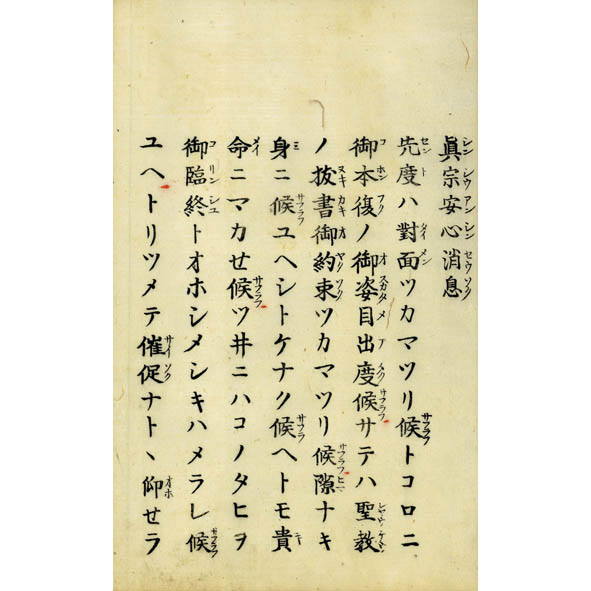 眞宗安心消息
先度ハ對面ツカマツリ候トコロニ
御本復ノ御姿目出度候サテハ聖教
ノ抜書御約束ツカマツリ候隙ナキ
身ニ候ユヘシトケナク候ヘトモ貴
命ニマカせ候ツ井ニハコノタヒヲ
御臨終トオホシメシキハメラレ候
ユヘトリツメテ催促ナトヽ仰せラ